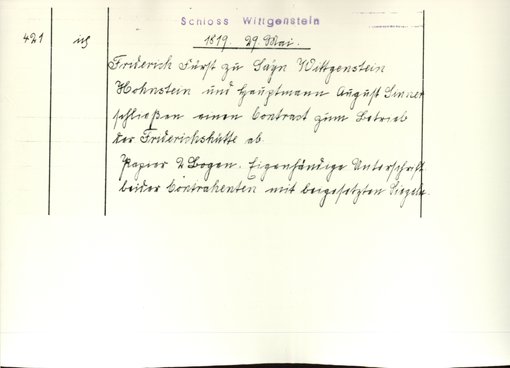 Schloss Wittgenstein
421 ich 1819. 29. Mai.
Friderich Fürst zu Sayn Wittgenstein
Hohnstein und Hauptmann August Sinner
schließen einen Contract zum Betrieb
der Friderichshütte ab.
Papier 2 Bogen. Eigenhändige Unterschrift
beider Contrahenten mit beigesetzten Siegeln.